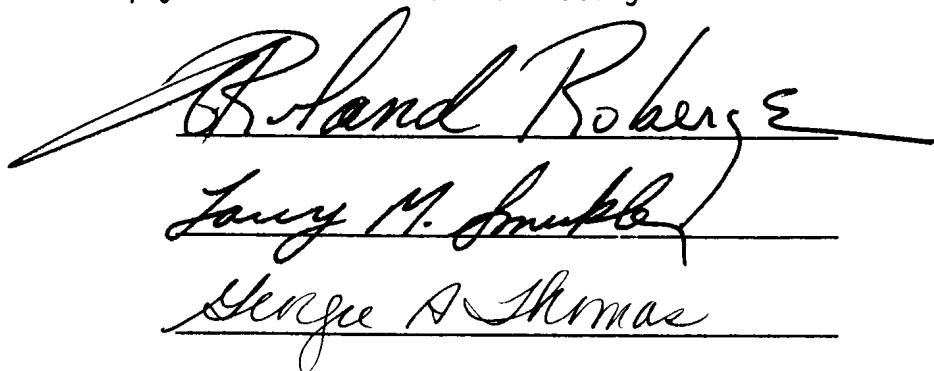 Roland Roberge
Larry M. Smukler
Georgie A Thomas